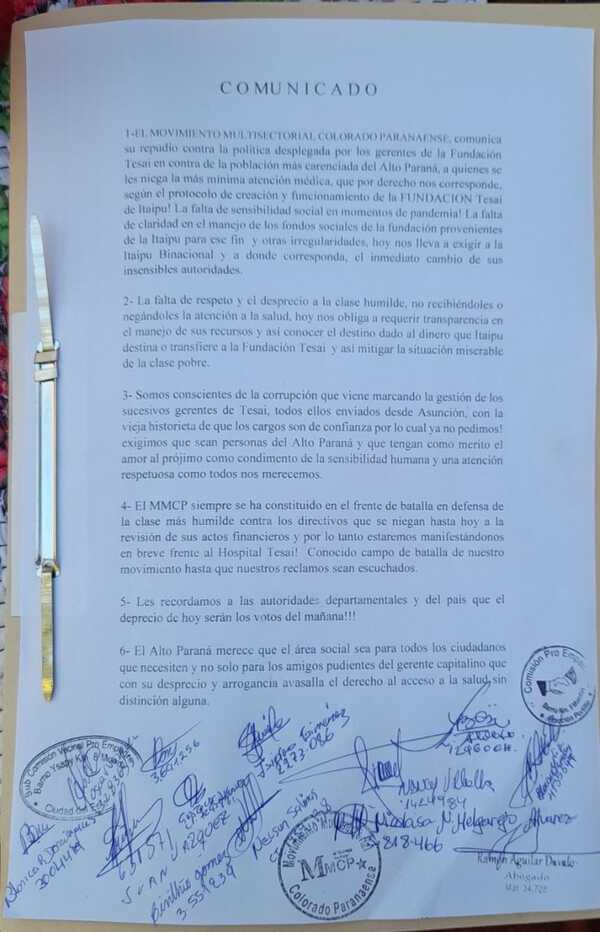 COMUNICADO
1-EL MOVIMIENTO MULTISECTORIAL COLORADO PARANAENSE, comunica
su repudio contra la política desplegada por los gerentes de la Fundación
Tesai en contra de la población más carenciada del Alto Paraná, a quienes se
les niega la más mínima atención médica, que por derecho nos corresponde,
según el protocolo de creación y funcionamiento de la FUNDACION Tesai
de Itaipu! La falta de sensibilidad social en momentos de pandemia! La falta
de claridad en el manejo de los fondos sociales de la fundación provenientes
de la Itaipu para ese fin y otras irregularidades, hoy nos lleva a exigir a la
Itaipu Binacional y a donde corresponda, el inmediato cambio de sus
insensibles autoridades.
2- La falta de respeto y el desprecio a la clase humilde, no recibiéndoles o
negándoles la atención a la salud, hoy nos obliga a requerir transparencia en
el manejo de sus recursos y así conocer el destino dado al dinero que Itaipu
destina o transfiere a la Fundación Tesai y así mitigar la situación miserable
de la clase pobre.
3- Somos conscientes de la corrupción que viene marcando la gestión de los
sucesivos gerentes de Tesai, todos ellos enviados desde Asunción, con la
vieja historieta de que los cargos son de confianza por lo cual ya no pedimos!
exigimos que sean personas del Alto Paraná y que tengan como merito el
amor al prójimo como condimento de la sensibilidad humana y una atención
respetuosa como todos nos merecemos.
4- El MMCP siempre se ha constituido en el frente de batalla en defensa de
la clase más humilde contra los directivos que se niegan hasta hoy a la
revisión de sus actos financieros y por lo tanto estaremos manifestándonos
en breve frente al Hospital Tesai! Conocido campo de batalla de nuestro
movimiento hasta que nuestros reclamos sean escuchados.
5- Les recordamos a las autoridades departamentales y del país que el
deprecio de hoy serán los votos del mañana!!!
6- El Alto Paraná merece que el área social sea para todos los ciudadanos
que necesiten y no solo para los amigos pudientes del gerente capitalino que
con su desprecio y arrogancia avasalla el derecho al acceso a la salud sin
distinción alguna.
Comisión Pro
Sub Comisión Vecinal Pro
Barrio Ysaty Km 8
Ciudad del Este
3691256
Jimenez
2973086
1424984
Nicolasa M. Melgarejo
818.466
Alvarez
651571
JUAN VAZQUEZ
gomez
3.551239
Nelson
Movimiento
MMCP
Colorado Paranaense
Ramón Aguilar Davalo
Abogado
Mat. 34.728